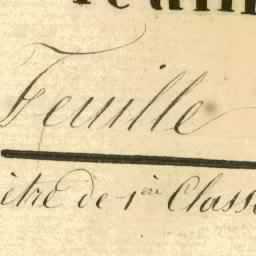 Feuille
ètre de 1ère Classe